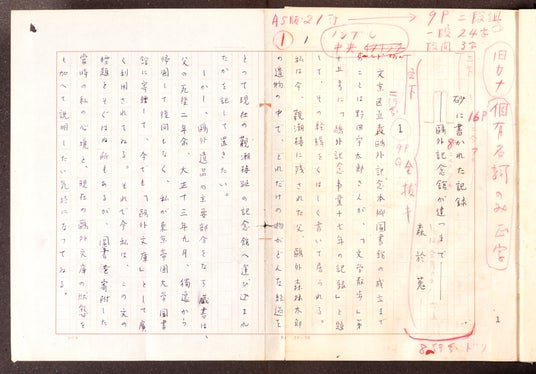 A5版・21行
9P 二段組
一段 24字
段間 3字
ノンブル
中央
1
旧カナ
個有名詞のみ正字
16P
砂に書かれた記録
――鷗外記念館が建つまで――
森 於菟
三下
1
9P
G
全抜キ
文京区立鷗外記念本郷図書館の成立まで
のことは野田宇太郎さんが、「文学散歩」第
十五号に「鷗外記念事業十七年の記録」と題
して、その経緯をくはしく書いて居られる。
私は今、観潮楼に残された父、鷗外森林太郎
の遺物の中で、どれだけの物がどんな経過を
とつて現在の観潮楼跡の記念館へ運び込まれ
たかを記して置きたい。
しかし、鷗外遺品の主要部分をなす蔵書は、
父の死後二年余、大正十三年九月、独逸から
帰国して間もなく、私が東京帝国大学図書
館に寄贈して、今でも「鷗外文庫」として廣
く利用されてゐる。それで今私は、この文の
標題とそぐはぬ所もあるが、図書寄附した
当時の私の心境と、現在の鷗外文庫の状態を
も加へて説明したい気持になつてゐる。
1